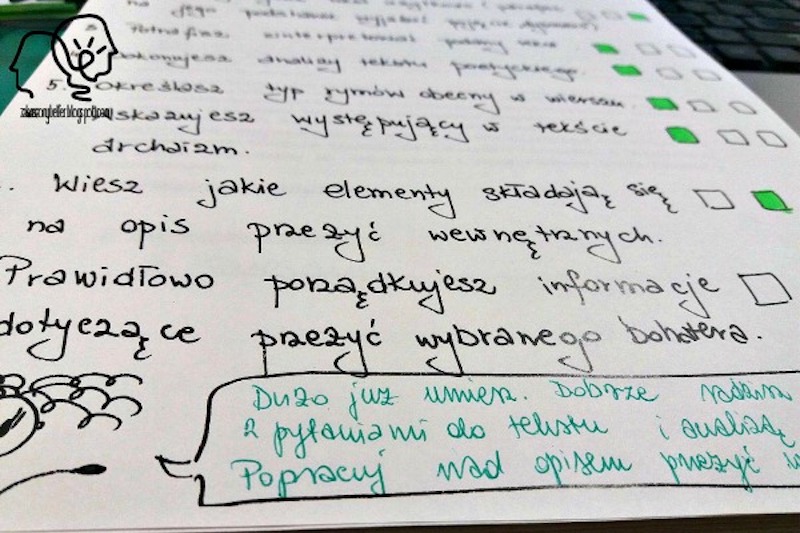 na jego podstawie
3. Potrafisz zinterpretować podany tekst.
Dokonujesz analizy tekstu poetyckiego.
5. Określasz typ rymów obecny w wierszu.
Wskazujesz występujący w tekście
archaizm.
. Wiesz jakie elementy składają się
na opis przeżyć wewnętrznych.
Prawidłowo porządkujesz informacje
dotyczące przeżyć wybranego bohatera.
Dużo już umiesz. Dobrze radzisz
z pytaniami do tekstu i analizą
Popracuj nad opisem przeżyć